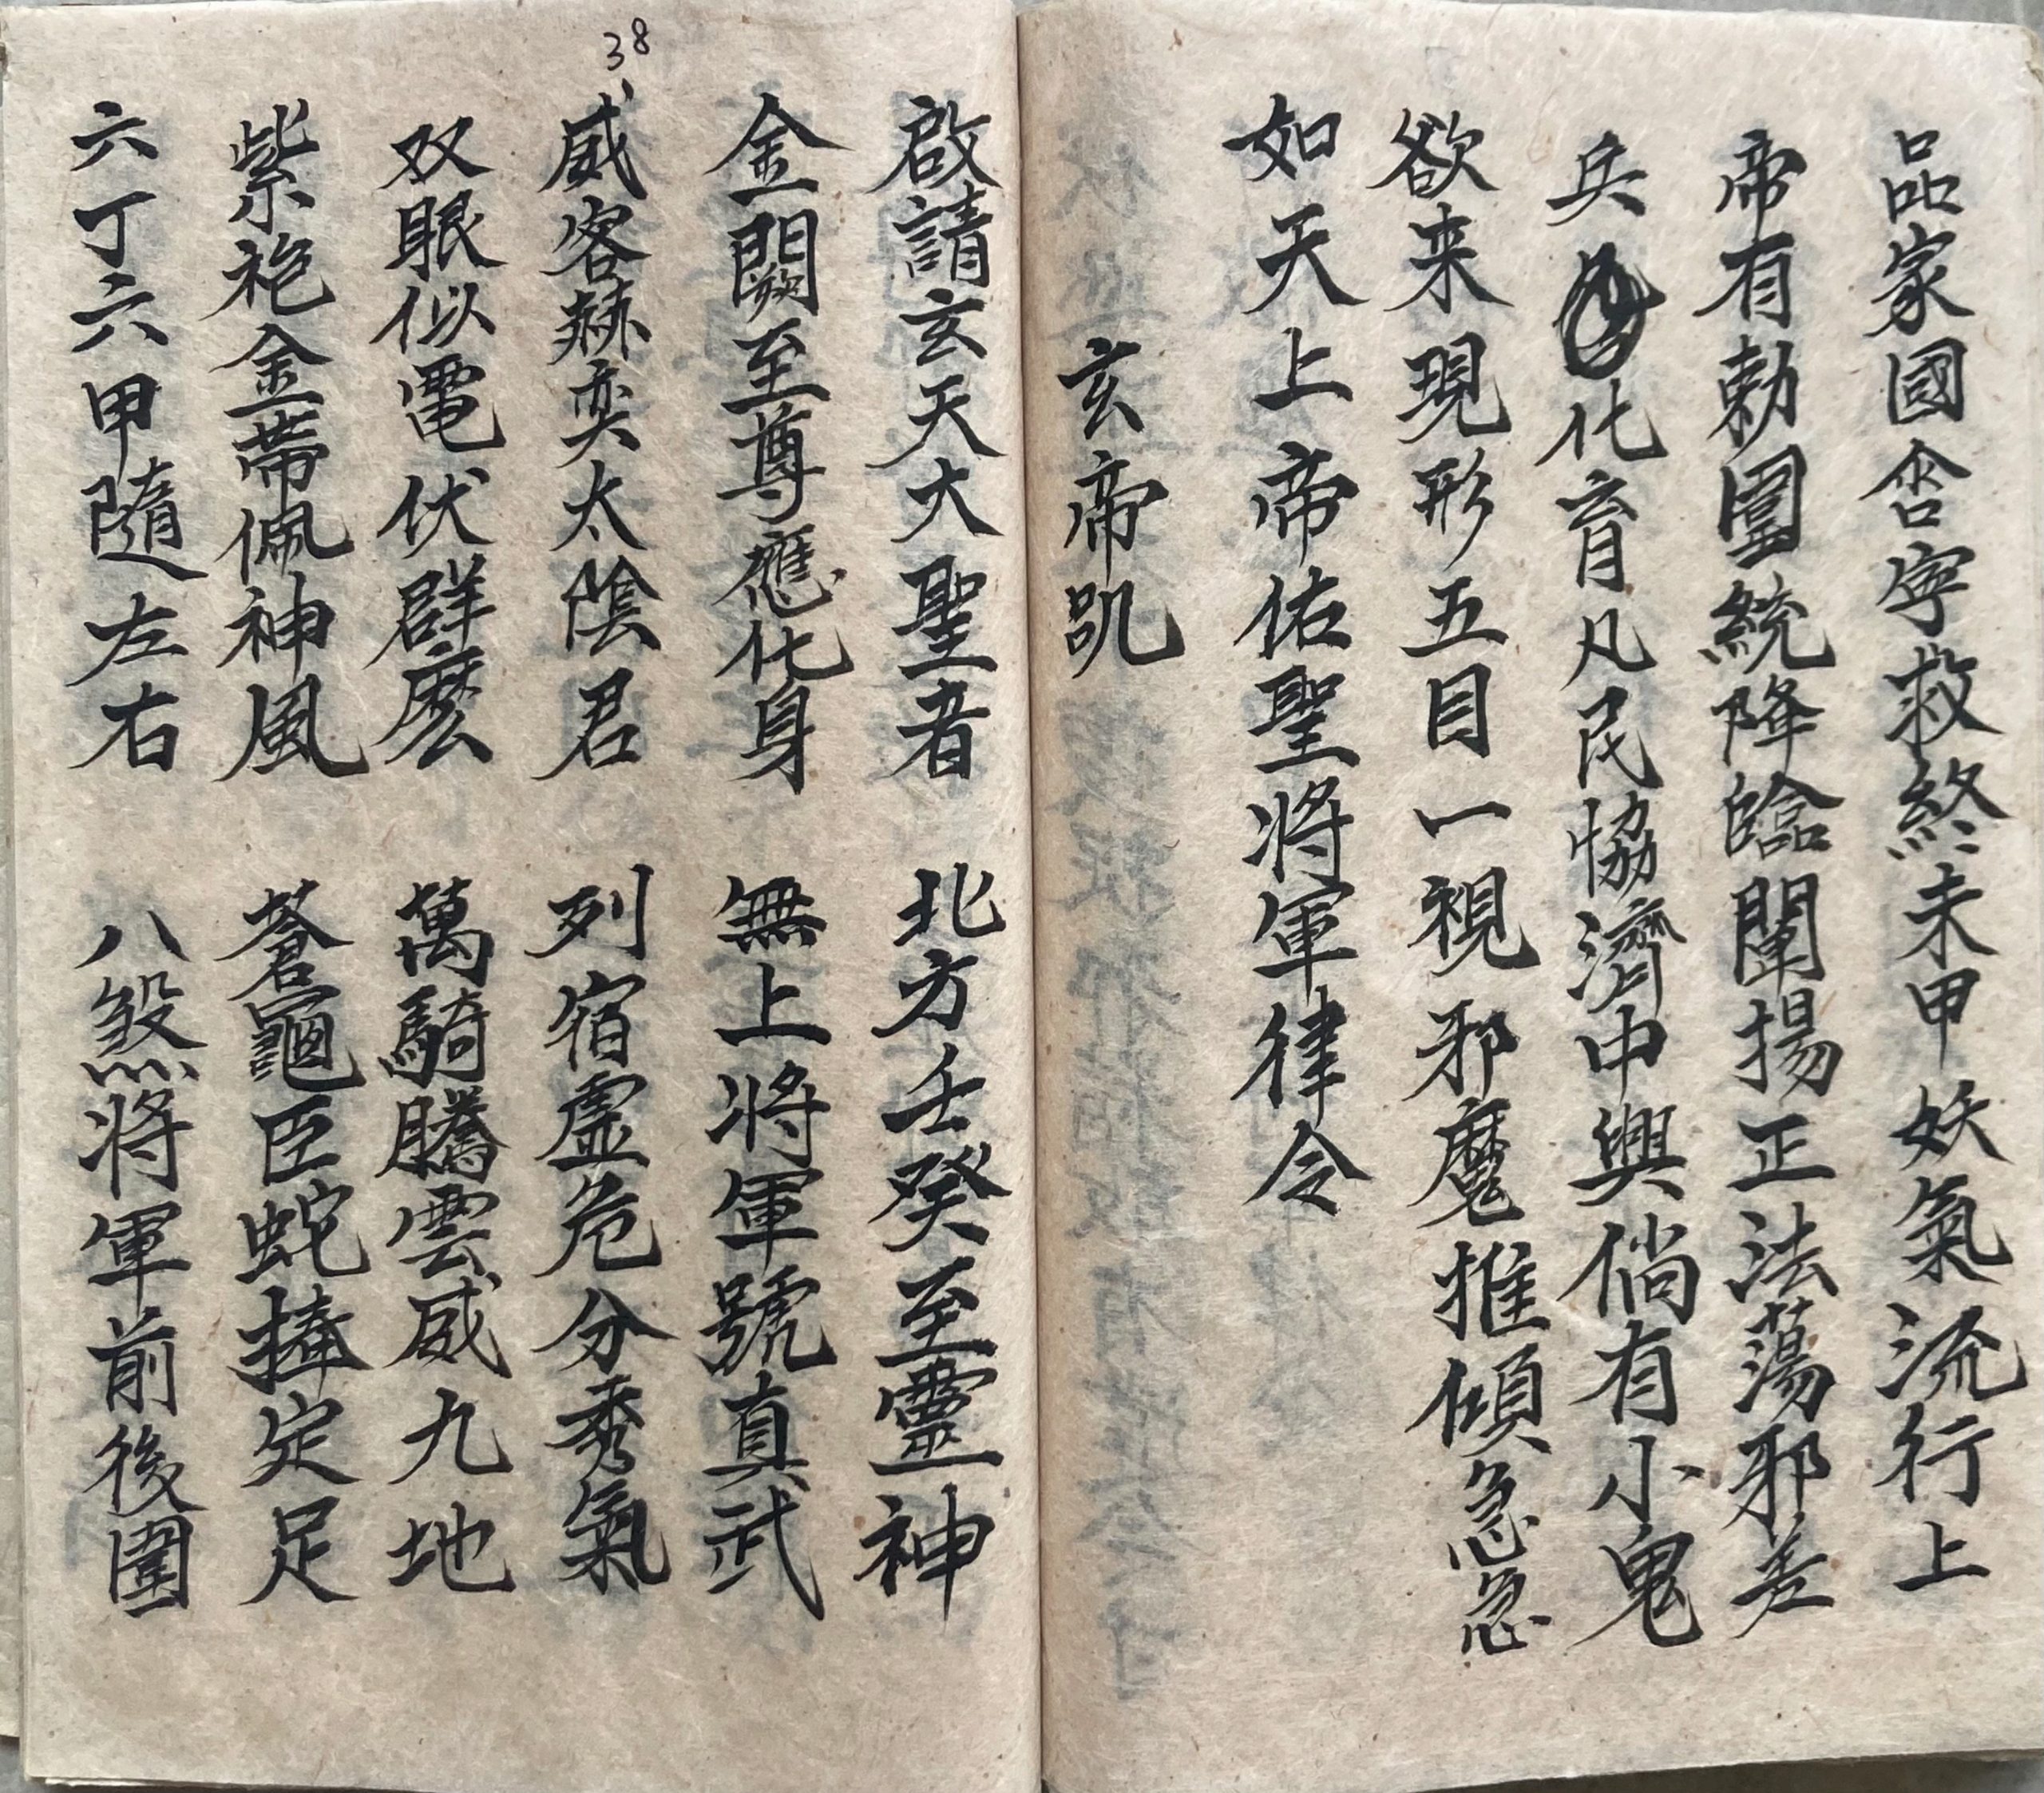 品家國含寧救終未甲妖氣流行上
帝有勅圍統降臨闡揚正法蕩邪差
兵化育凡民恊濟中興倘有小鬼
欲来現形五目一視邪魔推傾急急
如天上帝佑聖将軍律令
玄帝咒
啟請玄天大聖者 北方壬癸至靈神
金闕至尊應化身 無上将軍號真武
威容赫奕太陰君 列宿虚危分秀氣
双眼似電伏群麽 萬騎騰雲威九地
紫袍金帶佩神風 蒼龜臣蛇捧定足
六丁六甲隨左右 八煞将軍前後圍
38